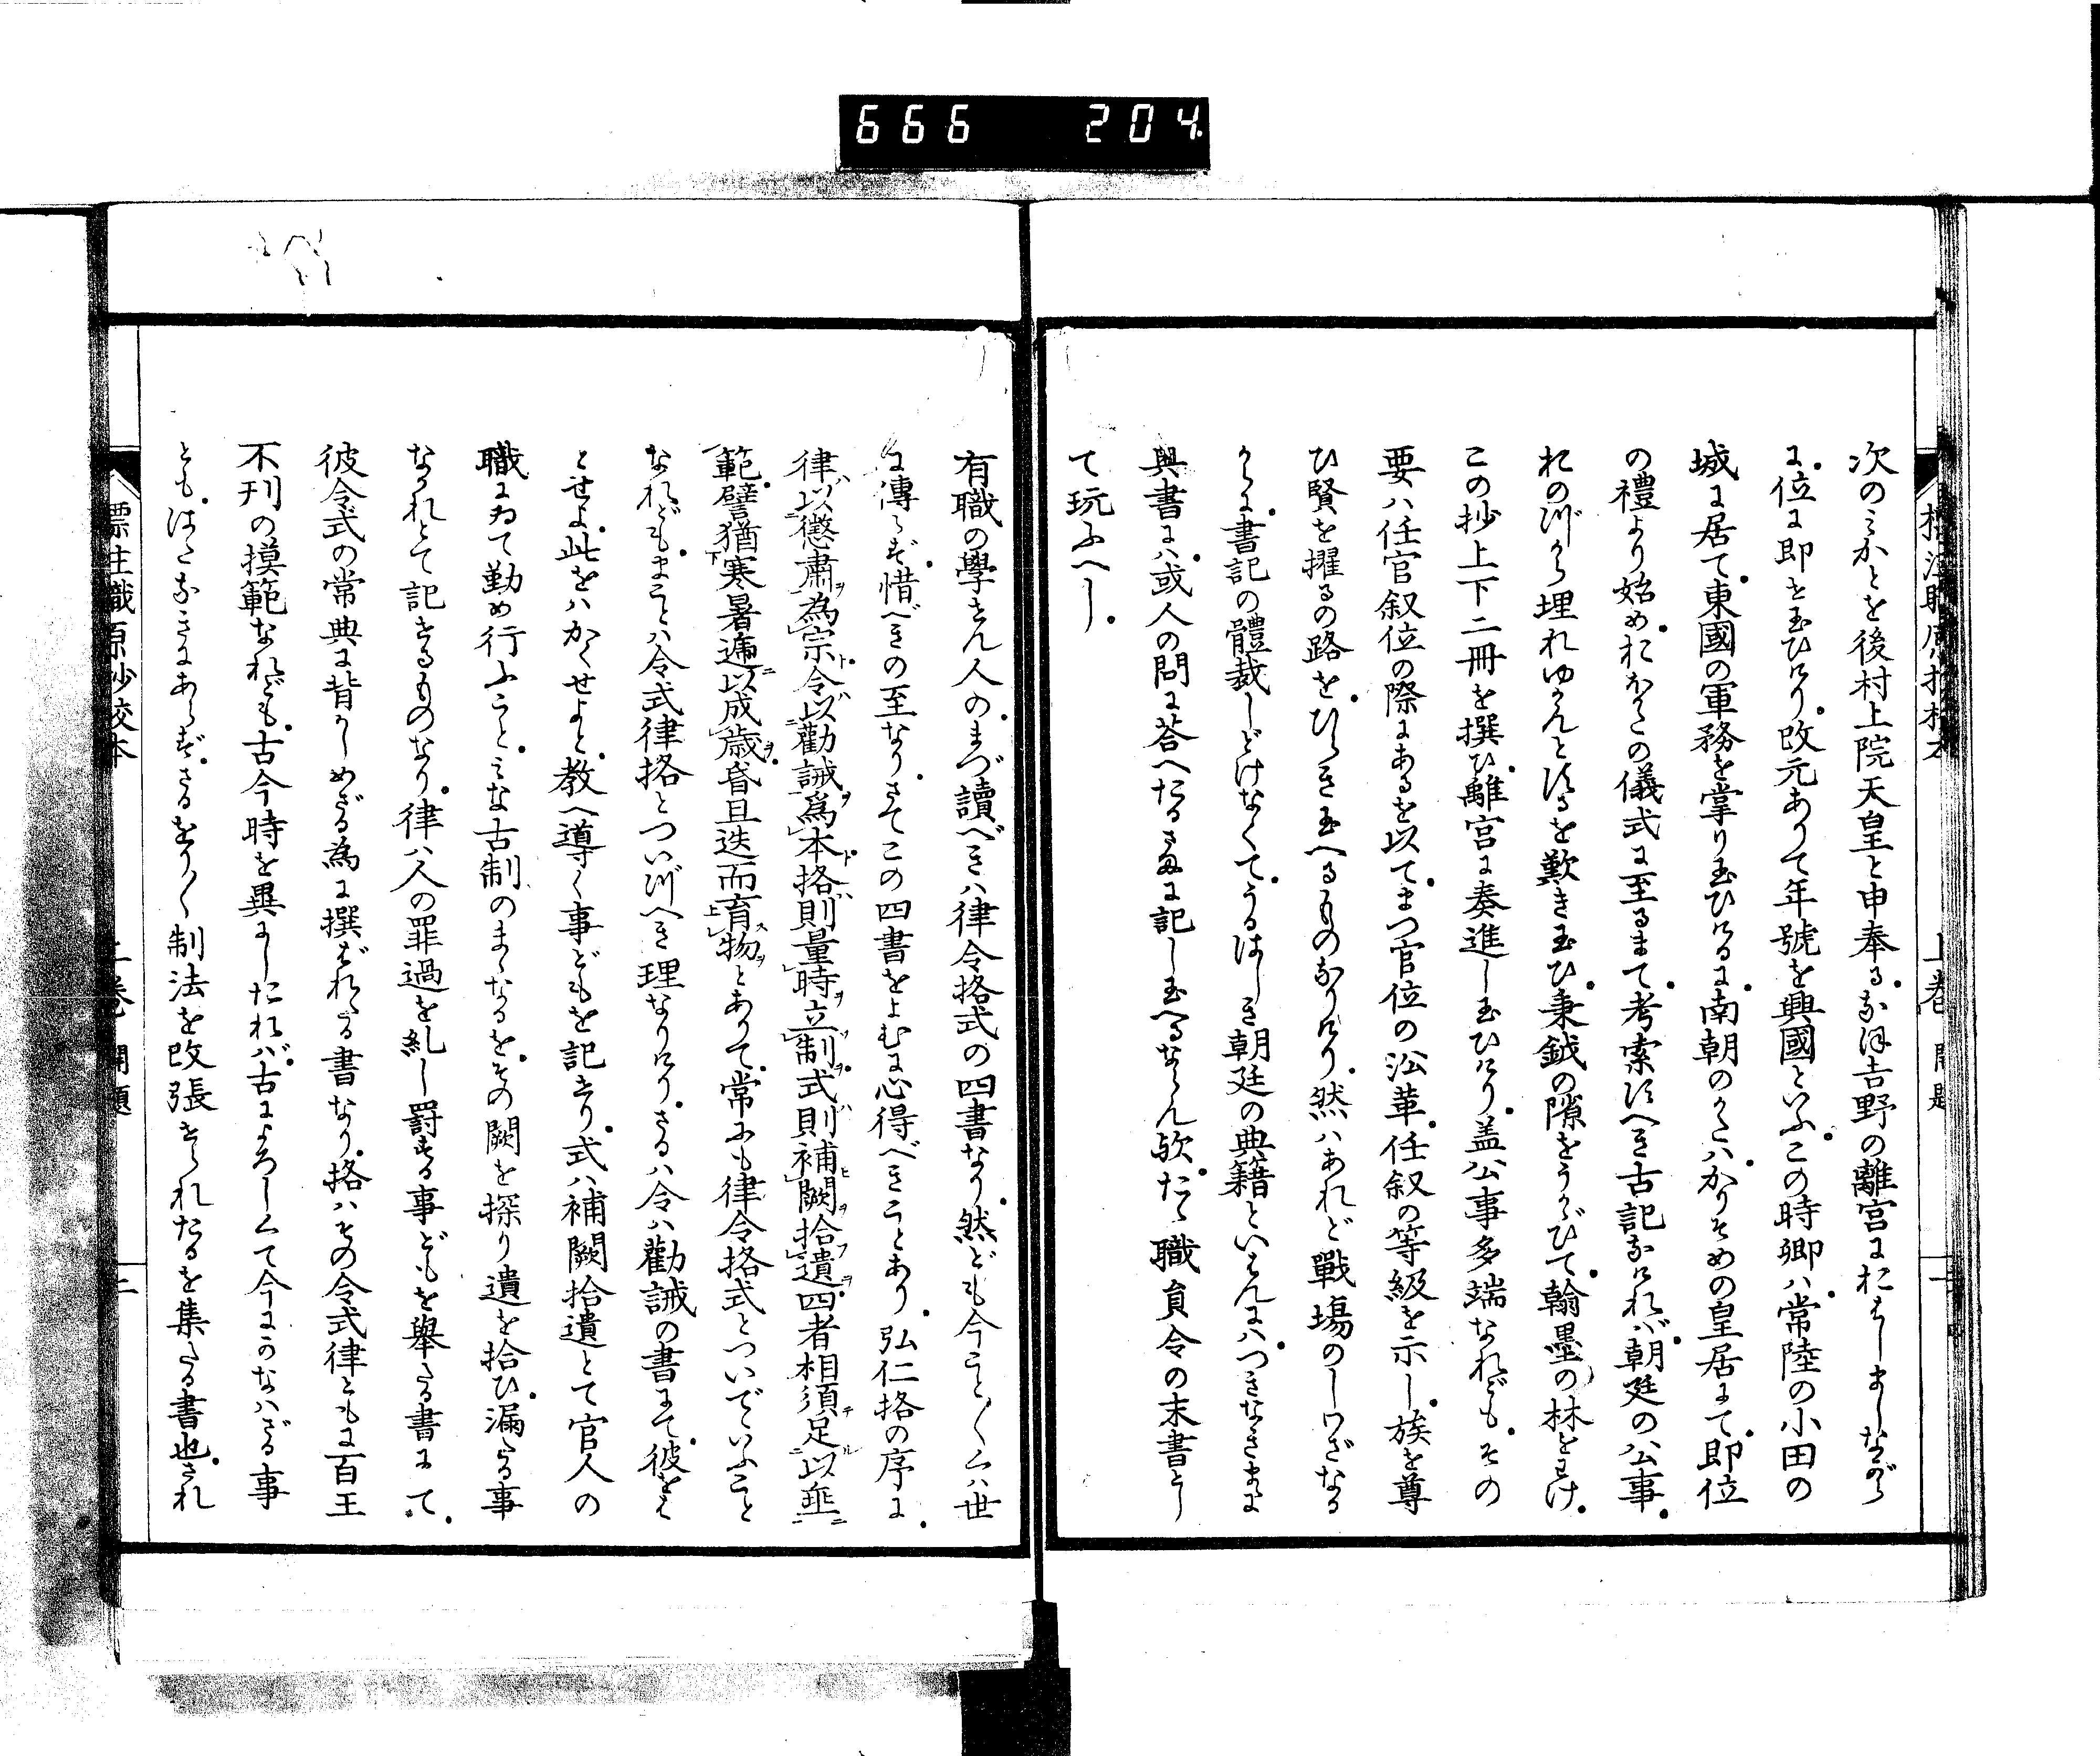 666 204
次のみかとを後村上院天皇と申奉る。なほ吉野の離宮におはしましなから
に。位に即き玉ひけり。改元ありて年號を興國といふ。この時卿ハ常陸の小田の
城に居て。東國の軍務を掌り玉ひけるに。南朝のかたハかりそめの皇居にて。即位
の禮より始め。おほくの儀式に至るまて。考索すへき古記なけれバ。朝廷の公事。
おのづから埋れゆかんとするを歎き玉ひ。秉鉞の隙をうかゞひて。翰墨の林をわけ。
この抄上下二冊を撰ひ。離宮に奏進し玉ひけり。盖公事多端なれども。その
要ハ任官叙位の際にあるを以て。まつ官位の沿革。任叙の等級を示し。族を尊
ひ賢を擢るの路を。ひらき玉へるものなりけり。然ハあれど戰塲のしわざなる
からに。書記の體裁しどけなくて。うるはしき朝廷の典籍といはんにハ。つきなきまに
奥書にハ。或人の問に荅へたるさまに記し玉へるならん欤。たゝ職員令の末書とし
て玩ふへし。
有職の學せん人の。まづ讀べきハ律令格式の四書なり。然ども今ことごとくハ世
に傳らず。惜べきの至なり。さてこの四書をよむに心得べきことあり。弘仁格の序に。
律ハ以懲肅ヲ為宗ト令ハ以勸誡ヲ爲本ト格ハ則量時ヲ立制ヲ式ハ則補闕ヲ拾遺ヲ。四者相須テ足ル以垂
範。譬猶寒暑遞ニ以成歳ヲ。昏旦迭而育物ヲとありて。常にも律令格式とついでゝいふこと
なれども。まことハ令式律格とついづへき理なりけり。さるハ令ハ勸誡の書にて。彼をは
とせよ。此をハかくせよと。教へ導く事どもを記せり。式ハ補闕拾遺とて官人の
職にゐて勤め行ふこと。みな古制のまゝなるを。その闕を探り遺を拾ひ。漏たる事
なかれとて記せるものなり。律ハ人の罪過を糺し罸する事どもを舉たる書にて。
彼令式の常典に背かしめざる為に撰ばれたる書なり。格ハその令式律ともに百王
不刊の摸範なれども。古今時を異にしたれバ。古によろしくて今にかなハざる事
とも。はたなきにあらず。さるをりをり制法を改張せられたるを集たる書也。され
標注職原抄校本 上巻 開題 二